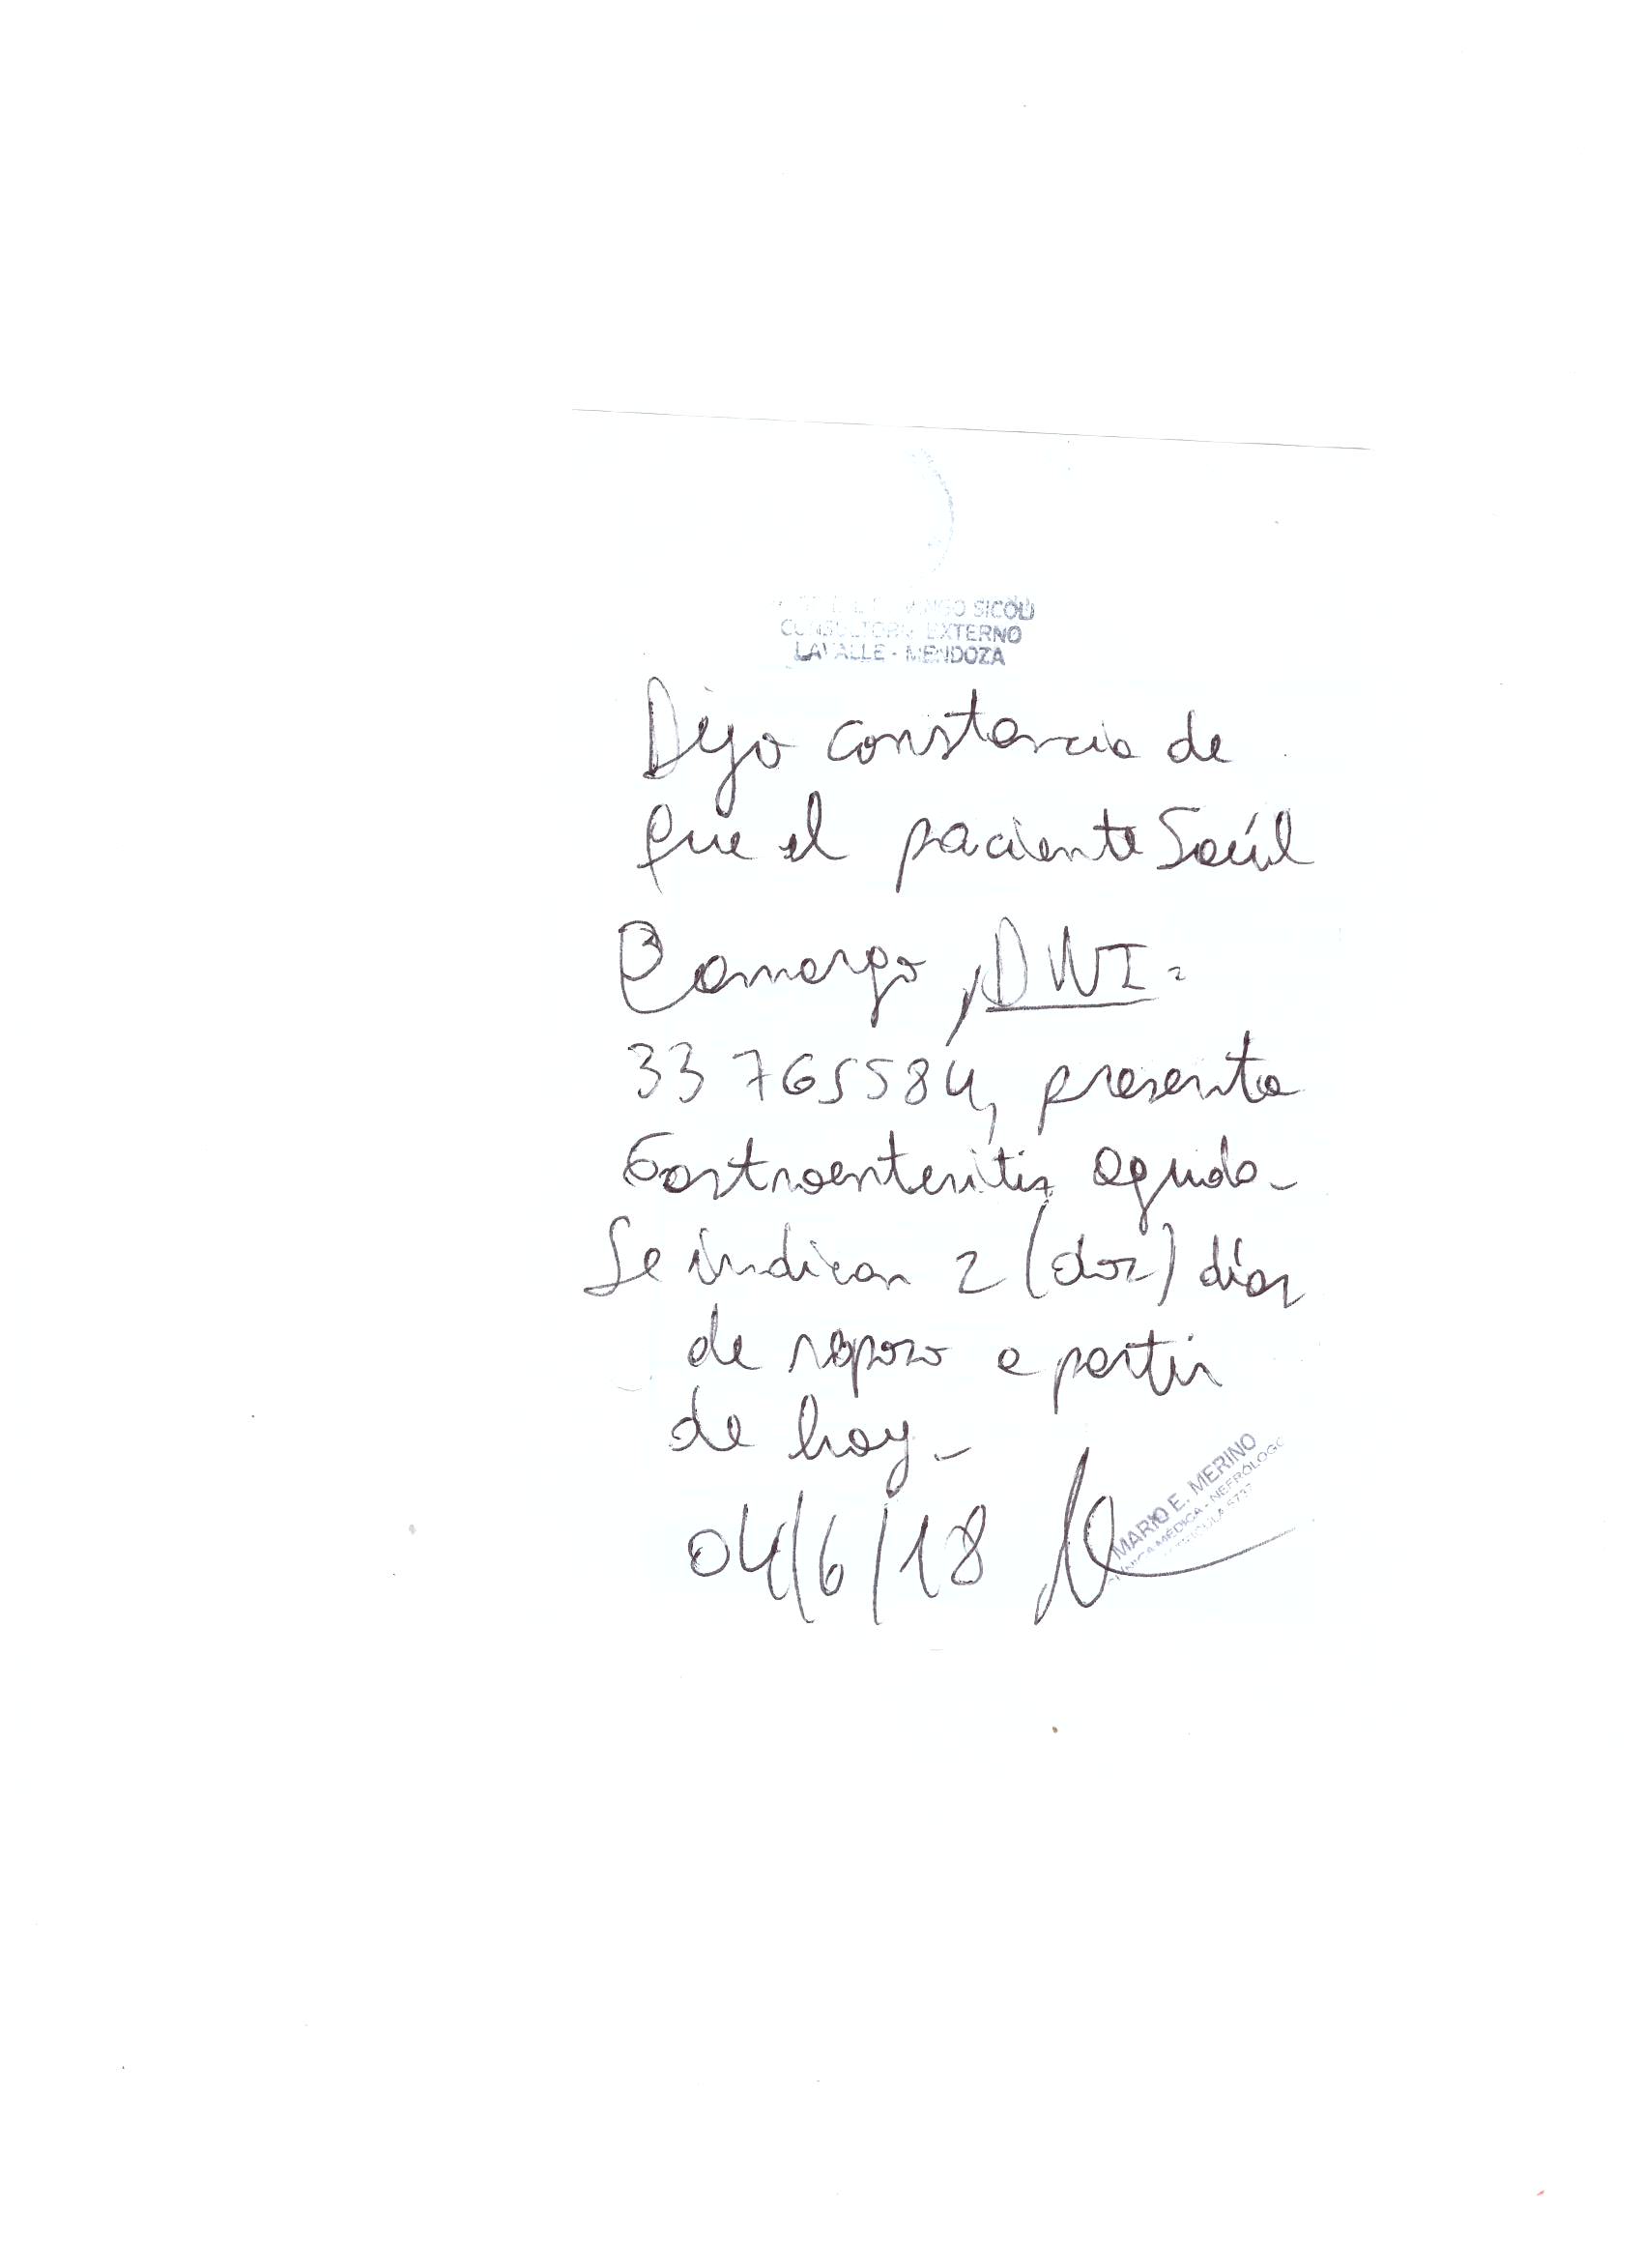 SICOLI
CONSULTORIO EXTERNO
LAVALLE - MENDOZA
Dejo constancia de
que el paciente Saúl
Camargo, DNI=
33765584, presenta
Gastroenteritis aguda-
Se indican 2 (dos) días
de reposo a partir
de hoy-
04/6/18
MARIO E. MERINO
CLINICA MÉDICA - NEFRÓLOGO